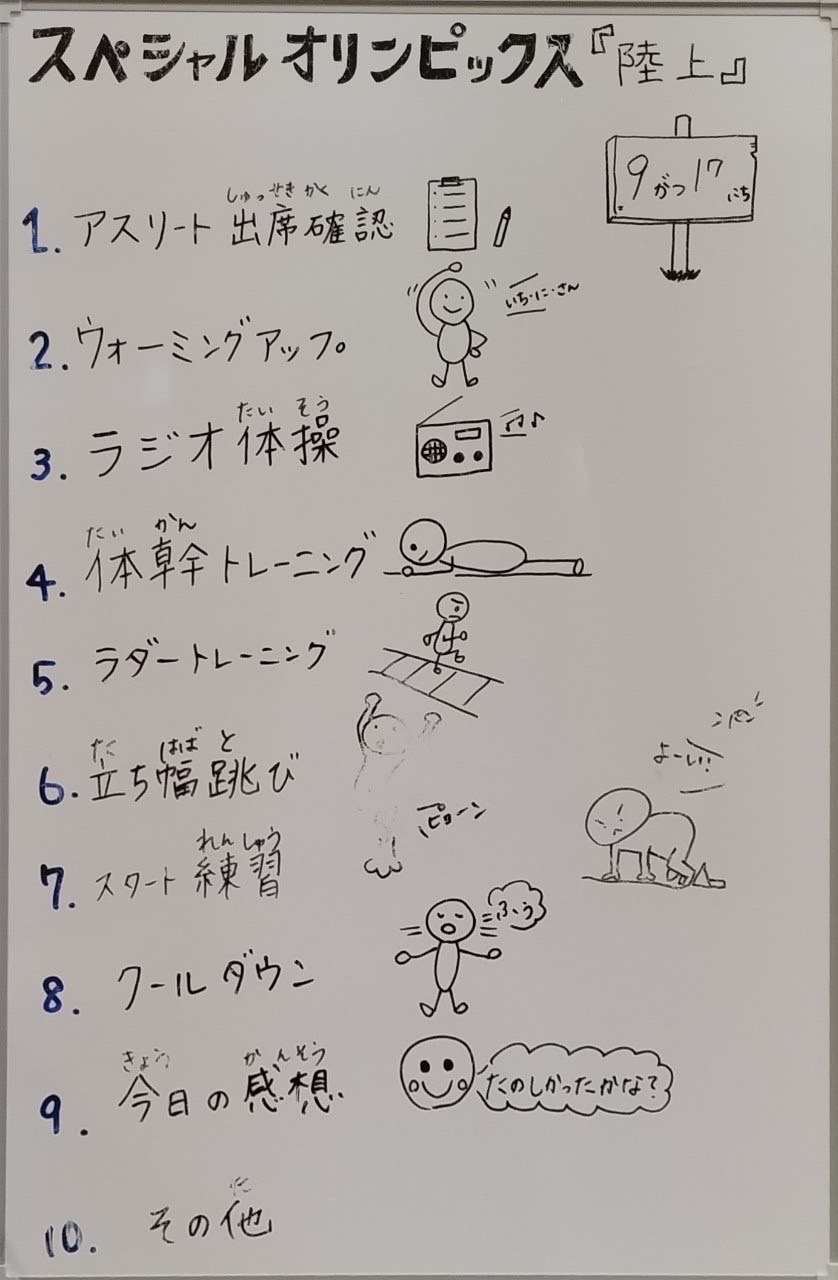 スペシャルオリンピックス『陸上』
9がつ17にち
しゅっせきかくにん
1. アスリート出席確認
いち・に・さん
2. ウォーミングアップ。
たいそう
3. ラジオ体操
たいかん
4. 体幹トレーニング
5. ラダートレーニング
た はば と
6. 立ち幅跳び
ピョーン
パン
よーい!!
れんしゅう
7. スタート練習
ふぅう
8. クールダウン
きょう かんそう
9. 今日の感想
たのしかったかな?
た
10. その他